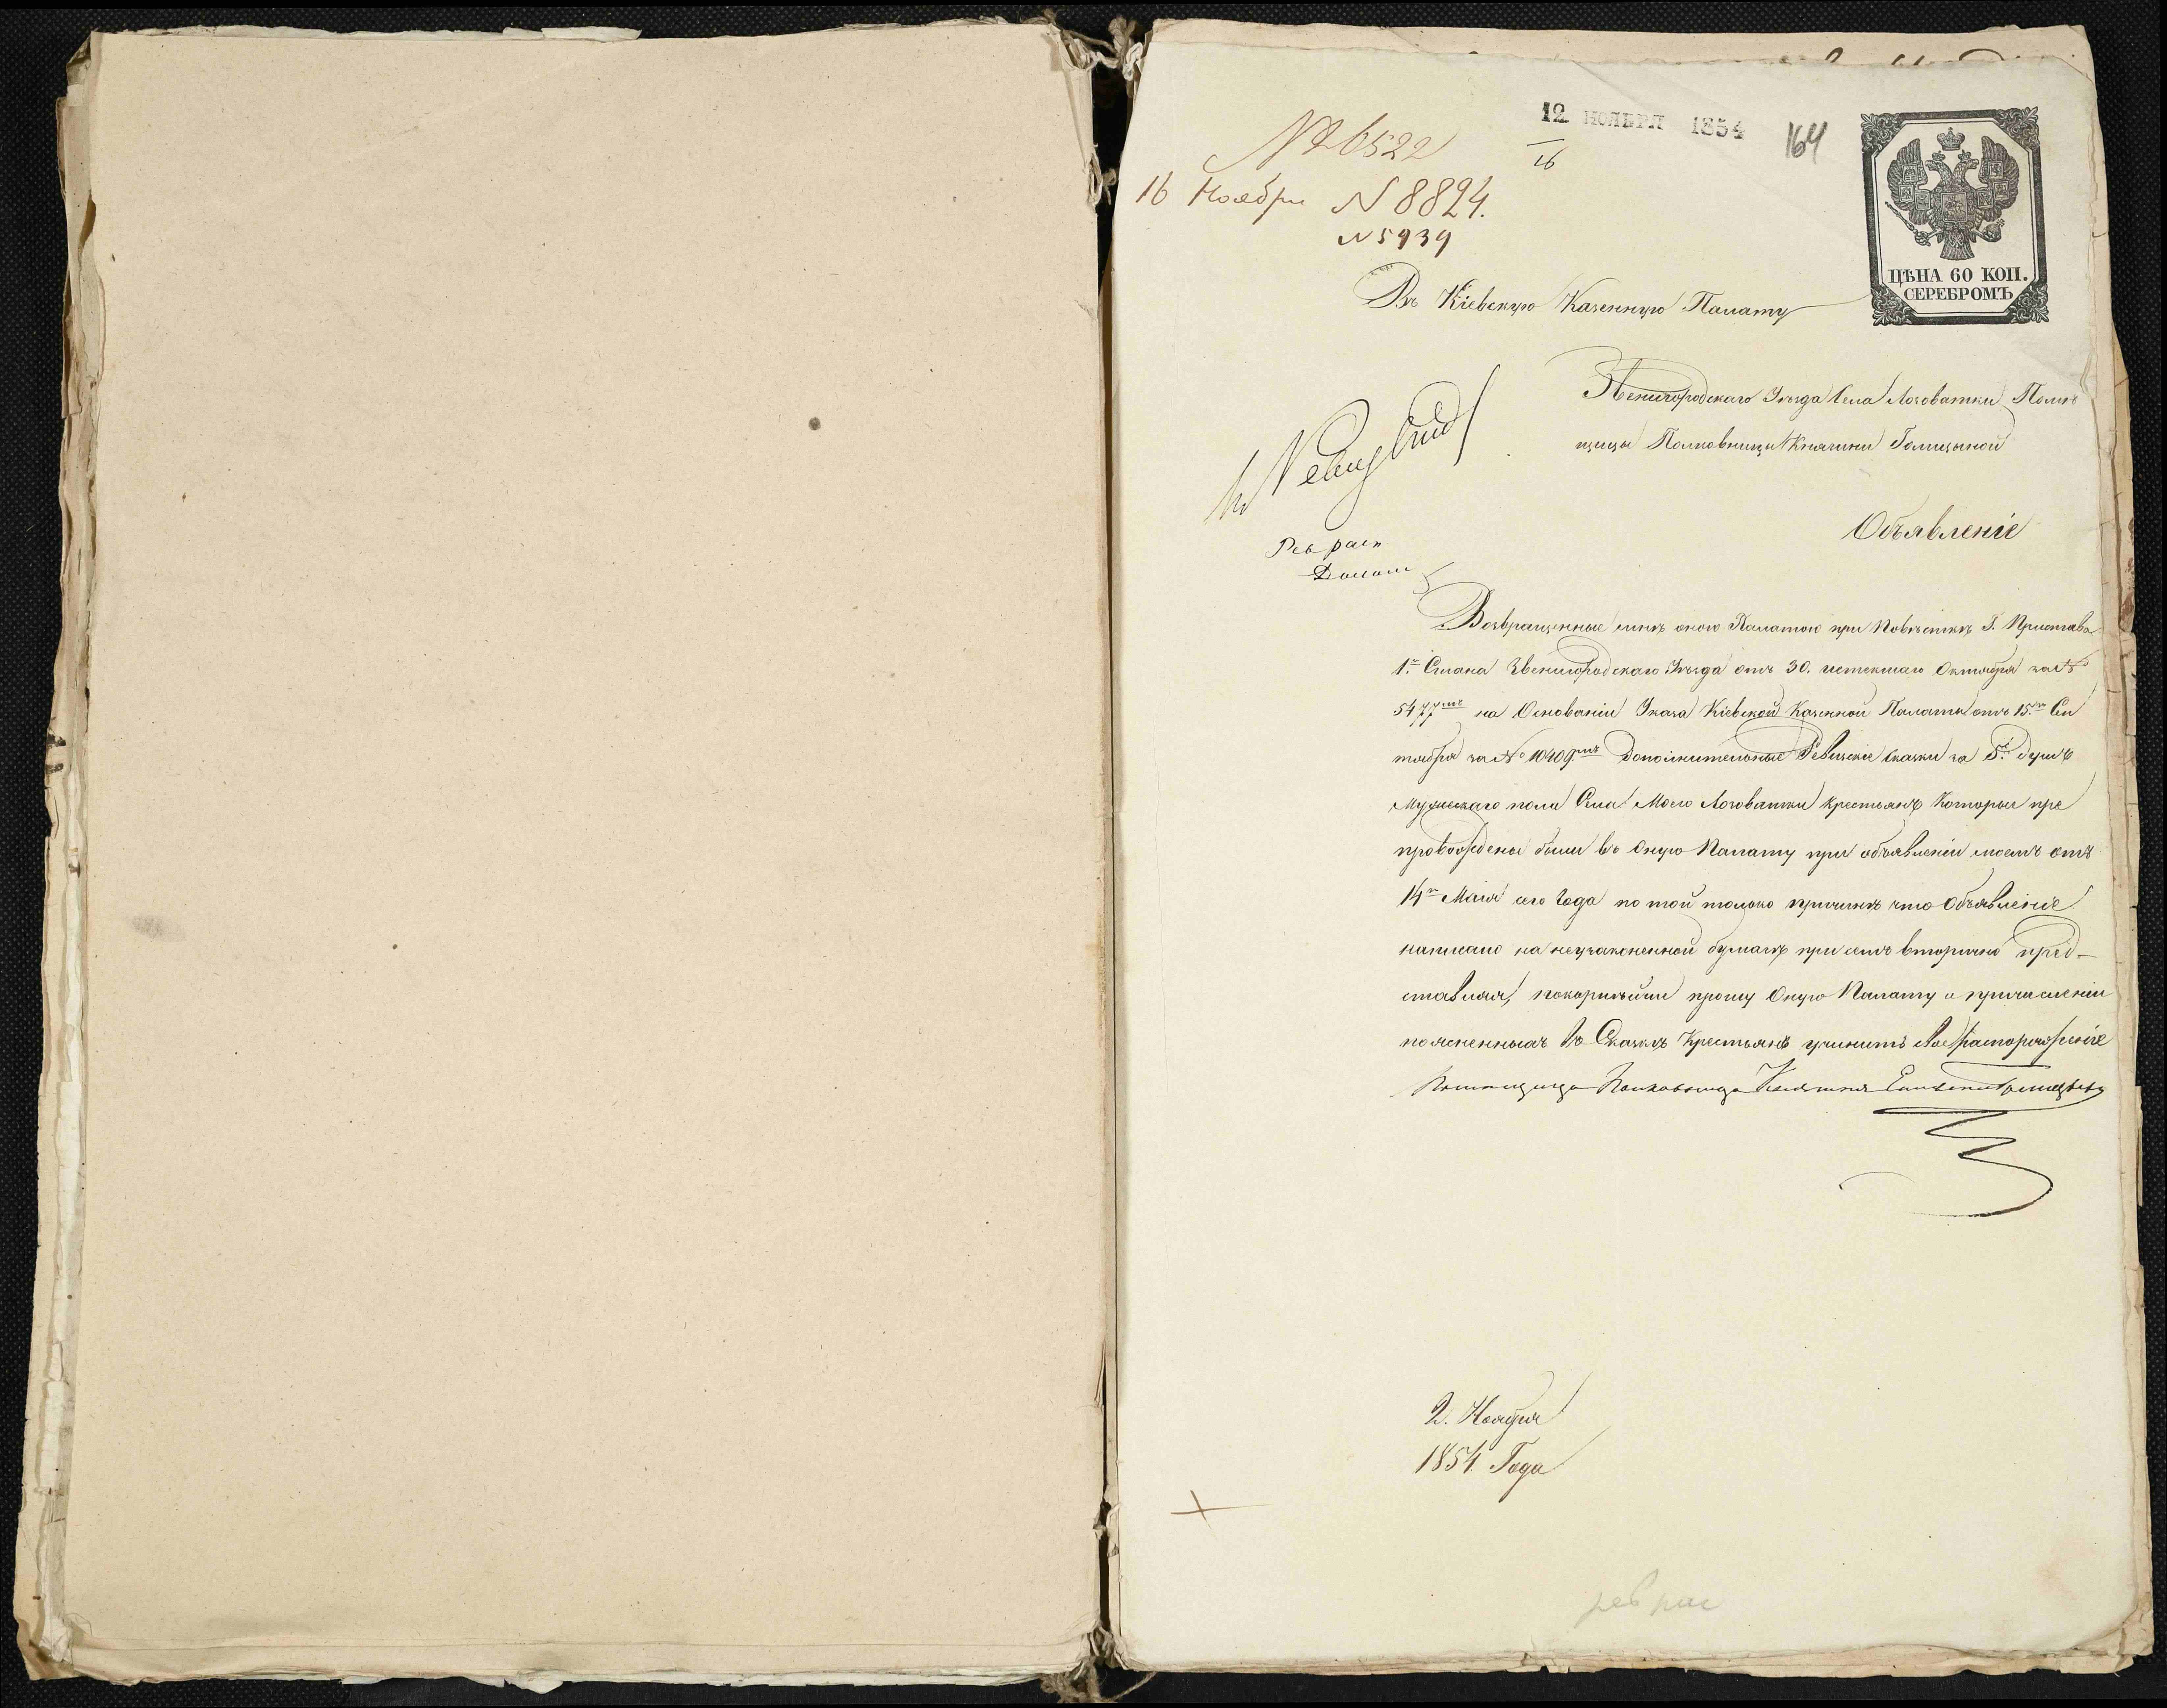 12 НОЯБРЯ 1854
164
16
№ 6522
16 Ноября N 8824.
N 5939
ЦѢНА 60 КОП.
СЕРЕБРОМЪ
Въ Кіевскую Казенную Палату
Звенигородскаго Уѣзда Села Лозоватки Помѣ
щицы Полковницы Княгини Голицыной
Объявленіе
Рев
Возвращенные мнѣ оною Палатою при Повѣсткѣ Г. Пристава
1го Стана Звенигородскаго Уѣзда отъ 30. истекшаго Октября за №
5477мъ на Основаніи Указа Кіевской Казенной Палаты отъ 15го Сен
тября за № 10409мъ Дополнительные Ревизскіе Сказки за 5. душъ
Мужескаго пола Села Моего Лозоватки крестьянъ Которые пре
провождены были въ Оную Палату при объявленіи моемъ отъ
14го Маія сего Года по той только причинѣ что Объявленіе
написано на неузаконенной бумагѣ при семъ вторично пред-
ставляя, покорнѣйше прошу Оную Палату о причисленіи
поясненныхъ въ Сказкѣ Крестьянъ учинить свое распоряженіе
Помещица Полковница Княгиня Голицына
2. Ноября
1854 Года
рев рас